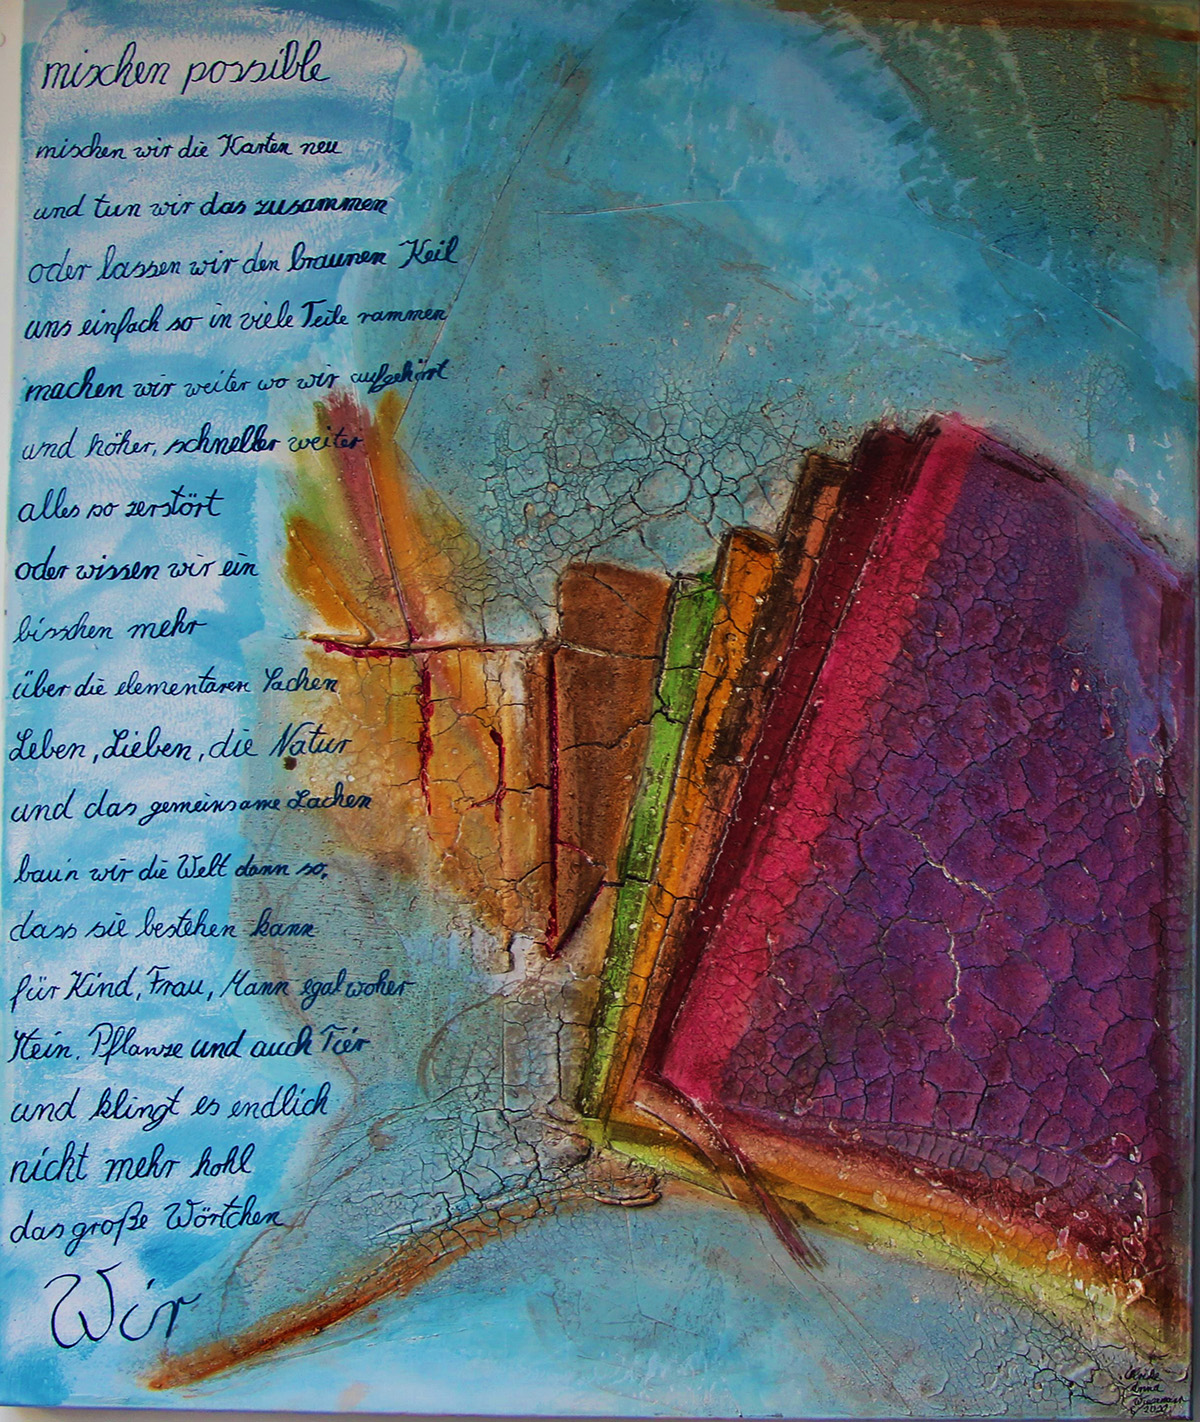 mischen possible
mischen wir die Karten neu
und tun wir das zusammen
oder lassen wir den braunen Keil
uns einfach so in viele Teile rammen
machen wir weiter wo wir aufgehört
und höher, schneller weiter
alles so zerstört
oder wissen wir ein
bisschen mehr
über die elementaren Sachen
Leben, Lieben, die Natur
und das gemeinsame Lachen
bau'n wir die Welt dann so,
dass sie bestehen kann
für Kind, Frau, Mann egal woher
Stein, Pflanze und auch Tier
und klingt es endlich
nicht mehr hohl
das große Wörtchen
Wir
Ulrike
Anna
2022